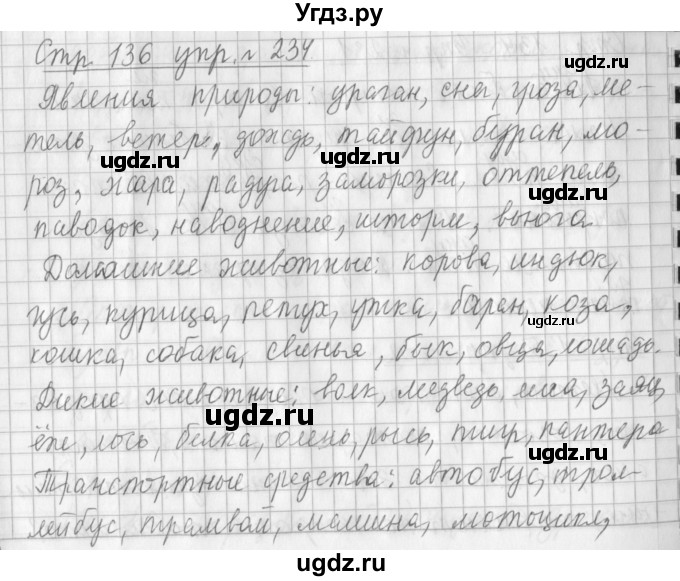 Угдз.ру
Стр. 136 упр. № 234
Явления природы: ураган, снег, гроза, ме-
тель, ветер, дождь, тайфун, буран, мо-
ugdz.ru ugdz.ru
ugdz.ru
роз, жара, радуга, заморозки, оттепель,
паводок, наводнение, шторм, вьюга
Домашние животные: корова, индюк,
гусь, курица, петух, утка, баран, коза,
ugdz.ru
кошка, собака, свинья, бык, овца, лошадь.
Дикие животные: волк, медведь, лиса, заяц,
ugdz.ru
ёж, лось, белка, олень, рысь, тигр, пантера
Транспортные средства: автобус, трол-
лейбус, трамвай, машина, мотоцикл,
ugdz.ru ugdz.ru